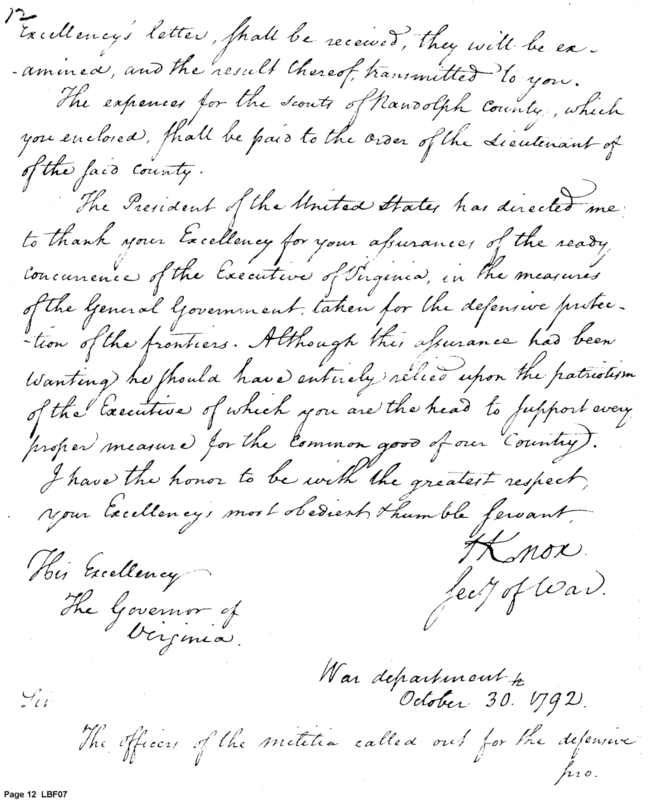 12
Excellency's letter, shall be received, they will be ex-
-amined, and the result thereof, transmitted to you.
The expences for the scouts of Randolph County, which
you enclosed, shall be paid to the order of the Lieutenant of
of the said county.
The President of the United States has directed me
to thank your Excellency for your assurances of the ready
concurrence of the Executive of Virginia, in the measures
of the General Government, taken for the defensive protec-
-tion of the frontiers. Although this assurance had been
wanting he should have entirely relied upon the patriotism
of the Executive of which you are the head to support every
proper measure for the common good of our Country.
I have the honor to be with the greatest respect,
your Excellency's most obedient & humble servant,
H Knox.
Secy of War.
His Excellency
The Governor of
Virginia.
War department
October 30. 1792.
Sir
The officers of the militia called out for the defensive
pro.
Page 12 LBF07